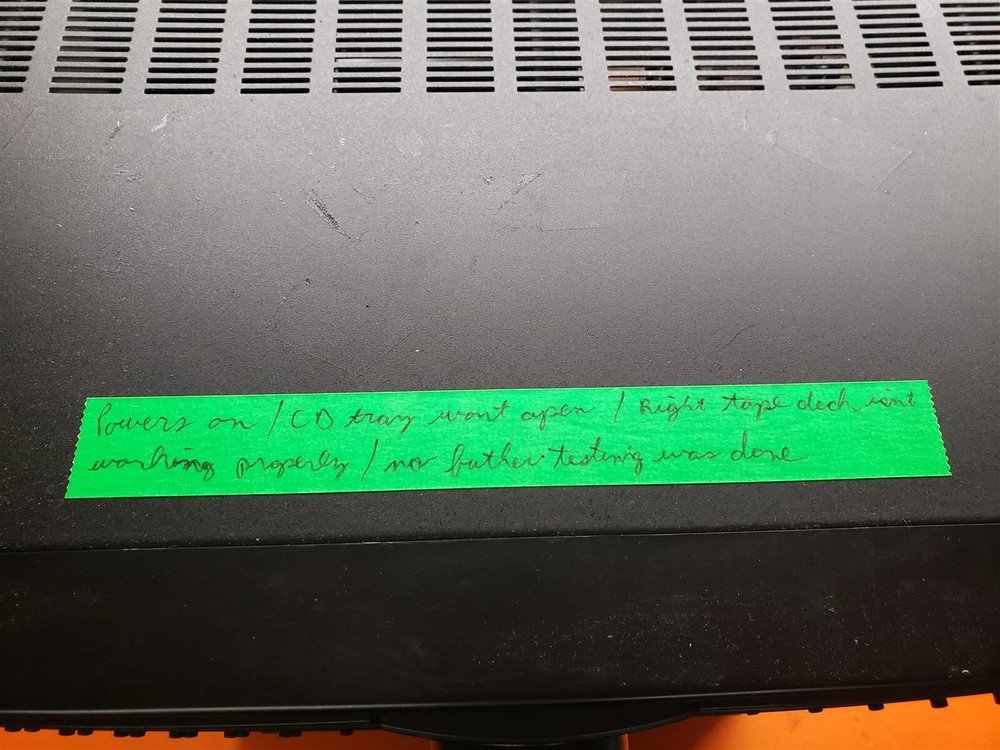 Powers on / CD tray wont open / Right tape deck isnt
working properly / no futher testing was done